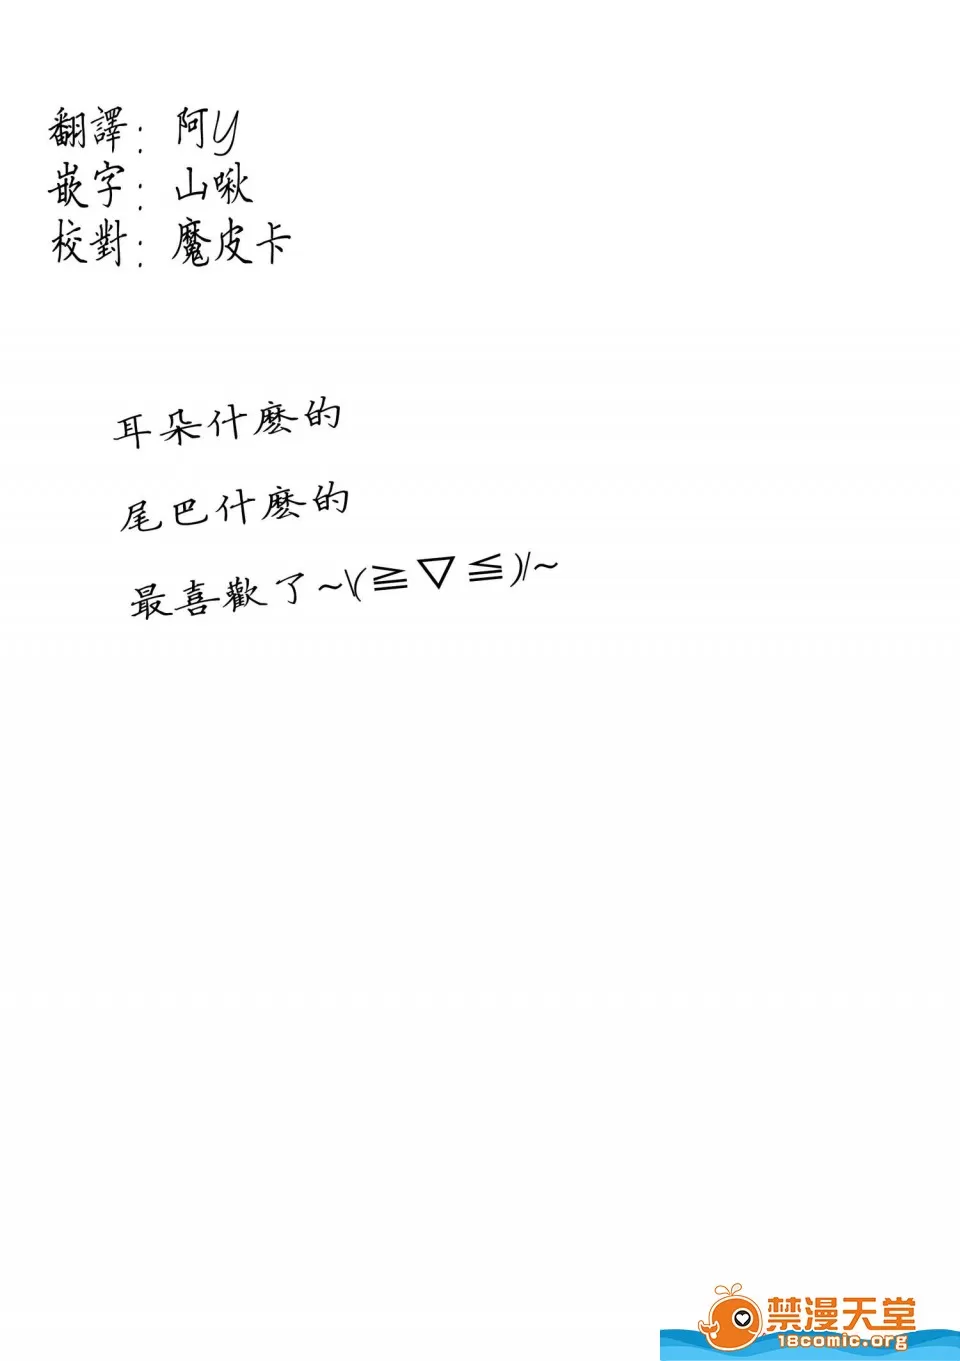 翻譯：阿Y
嵌字：山啾
校對：魔皮卡
耳朵什麽的
尾巴什麽的
最喜歡了~\(≧▽≦)/~
禁漫天堂
18comic.org